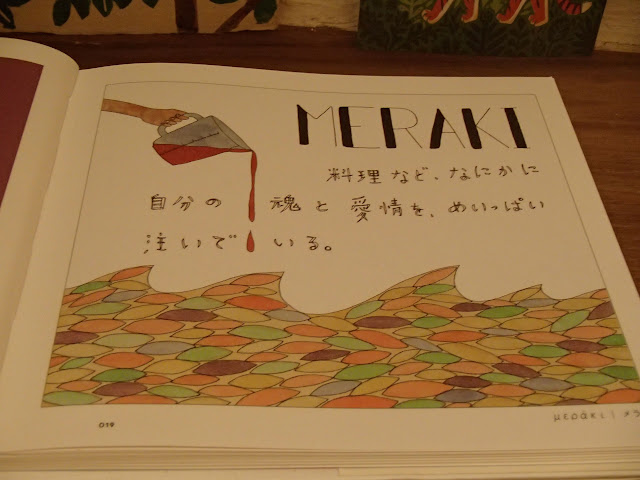 MERAKI
料理など、なにかに
自分の 魂と愛情を、めいっぱい
注いでいる。
019
μεράκι | メラ